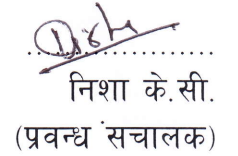 निशा के.सी.
(प्रवन्ध संचालक)